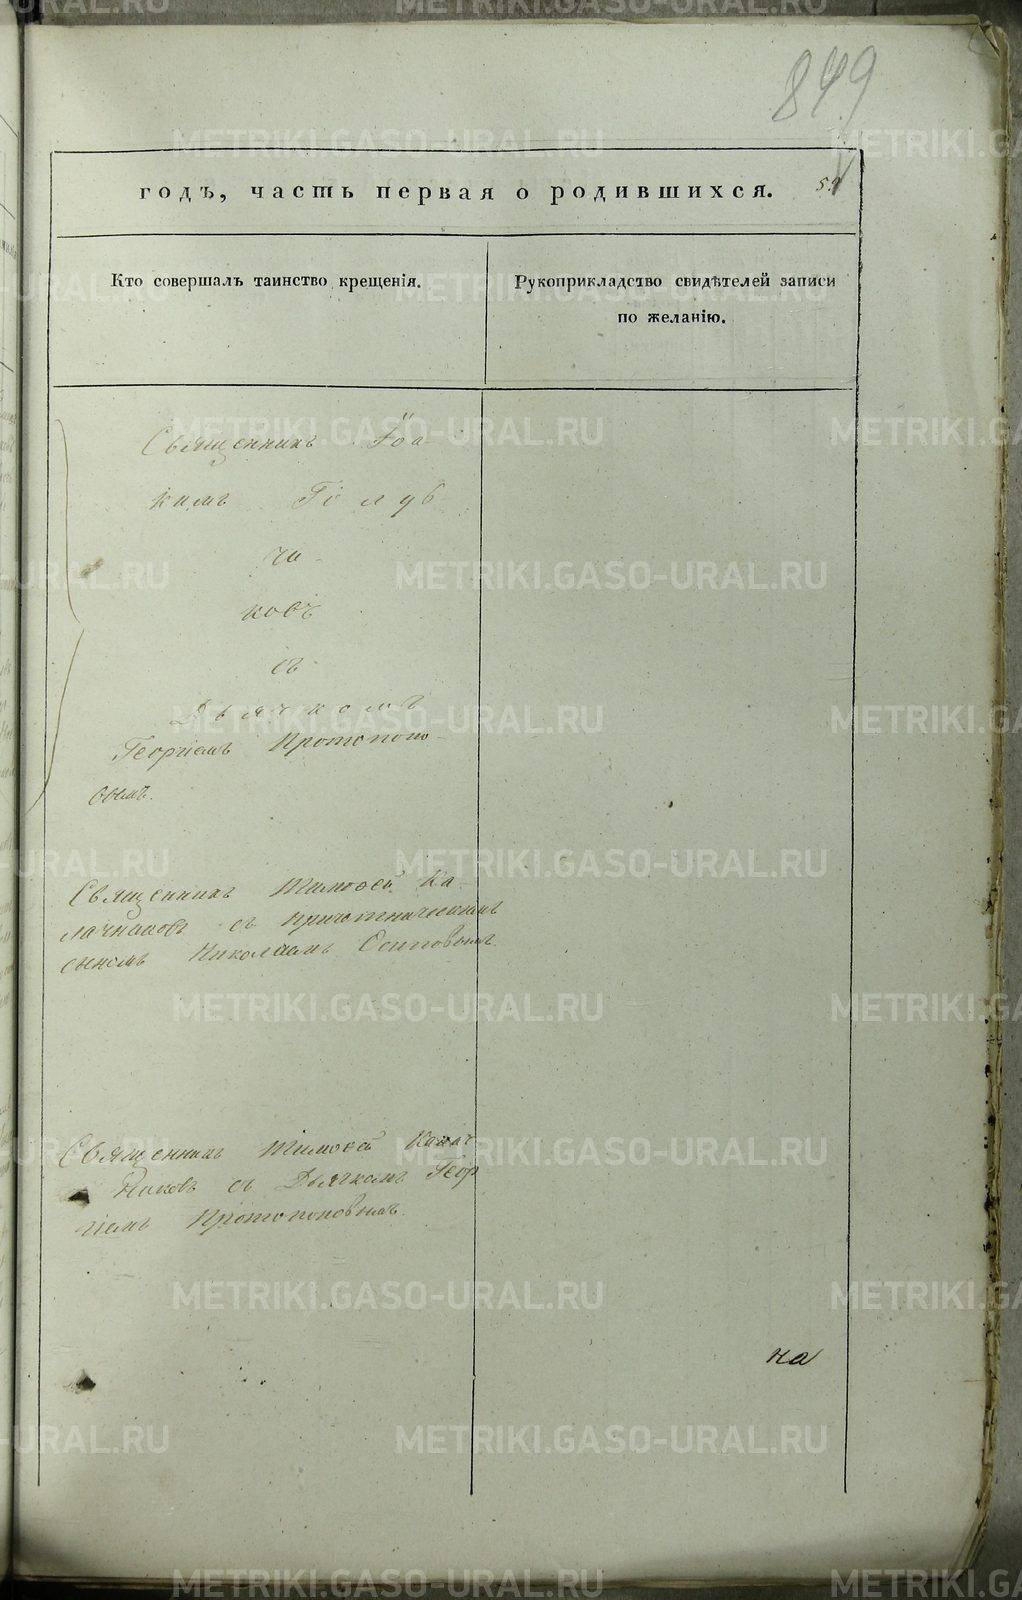 849
годъ, часть первая о родившихся.
Кто совершалъ таинство крещенія.
Рукоприкладство свидѣтелей записи
по желанію.
Священникъ Іоа-
кимъ Голуб
ча-
ковъ
съ
Дьячкомъ
Георгіемъ Протопопо-
вымъ.
Священникъ Тимоѳей Ка-
лачниковъ съ причетническимъ
сыномъ Николаемъ Осиповымъ
Священникъ Тимоѳей Калач
никовъ съ Дьячкомъ Геор
гіемъ Протопоповымъ.
на
METRIKI.GASO-URAL.RU